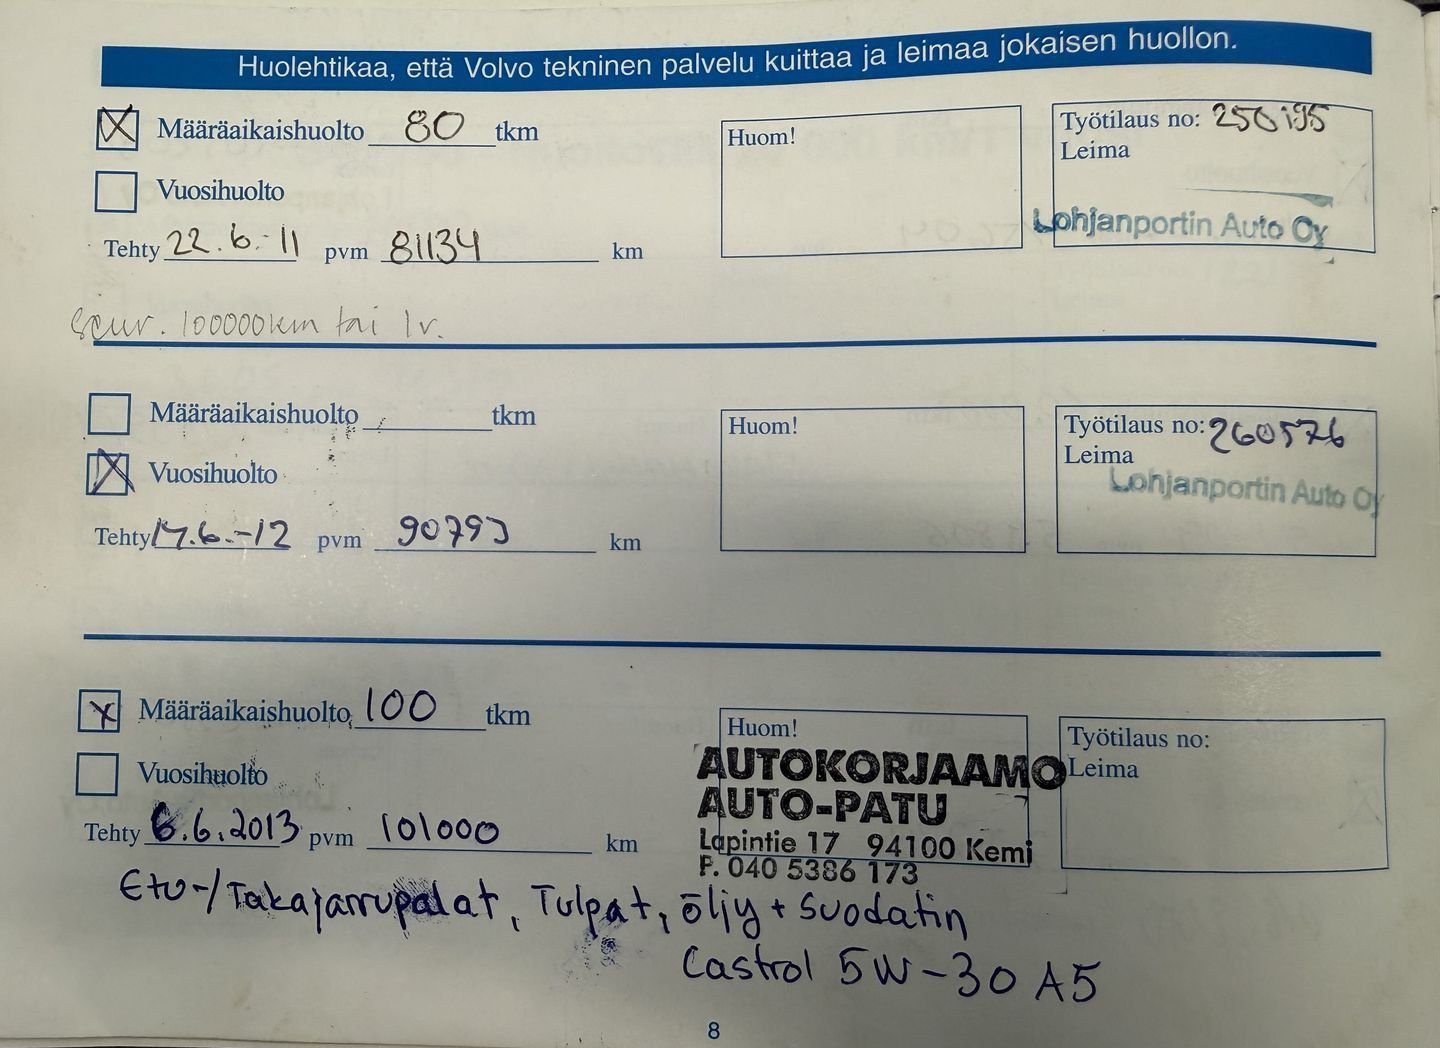 Huolehtikaa, että Volvo tekninen palvelu kuittaa ja leimaa jokaisen huollon.
Määräaikaishuolto 80 tkm
Vuosihuolto
Tehty 22.6.-11 pvm 81134 km
seur. 100000km tai 1v.
Huom!
Työtilaus no: 250195
Leima
Lohjanportin Auto Oy
Määräaikaishuolto tkm
Vuosihuolto
Tehty 14.6.-12 pvm 90793 km
Huom!
Työtilaus no: 260576
Leima
Lohjanportin Auto Oy
Määräaikaishuolto 100 tkm
Vuosihuolto
Tehty 6.6.2013 pvm 101000 km
Huom!
AUTOKORJAAMO
AUTO-PATU
Lapintie 17 94100 Kemi
P. 040 5386 173
Työtilaus no:
Leima
Etu-/Takajarrupalat, Tulpat, öljy + Suodatin
Castrol 5W-30 A5
8